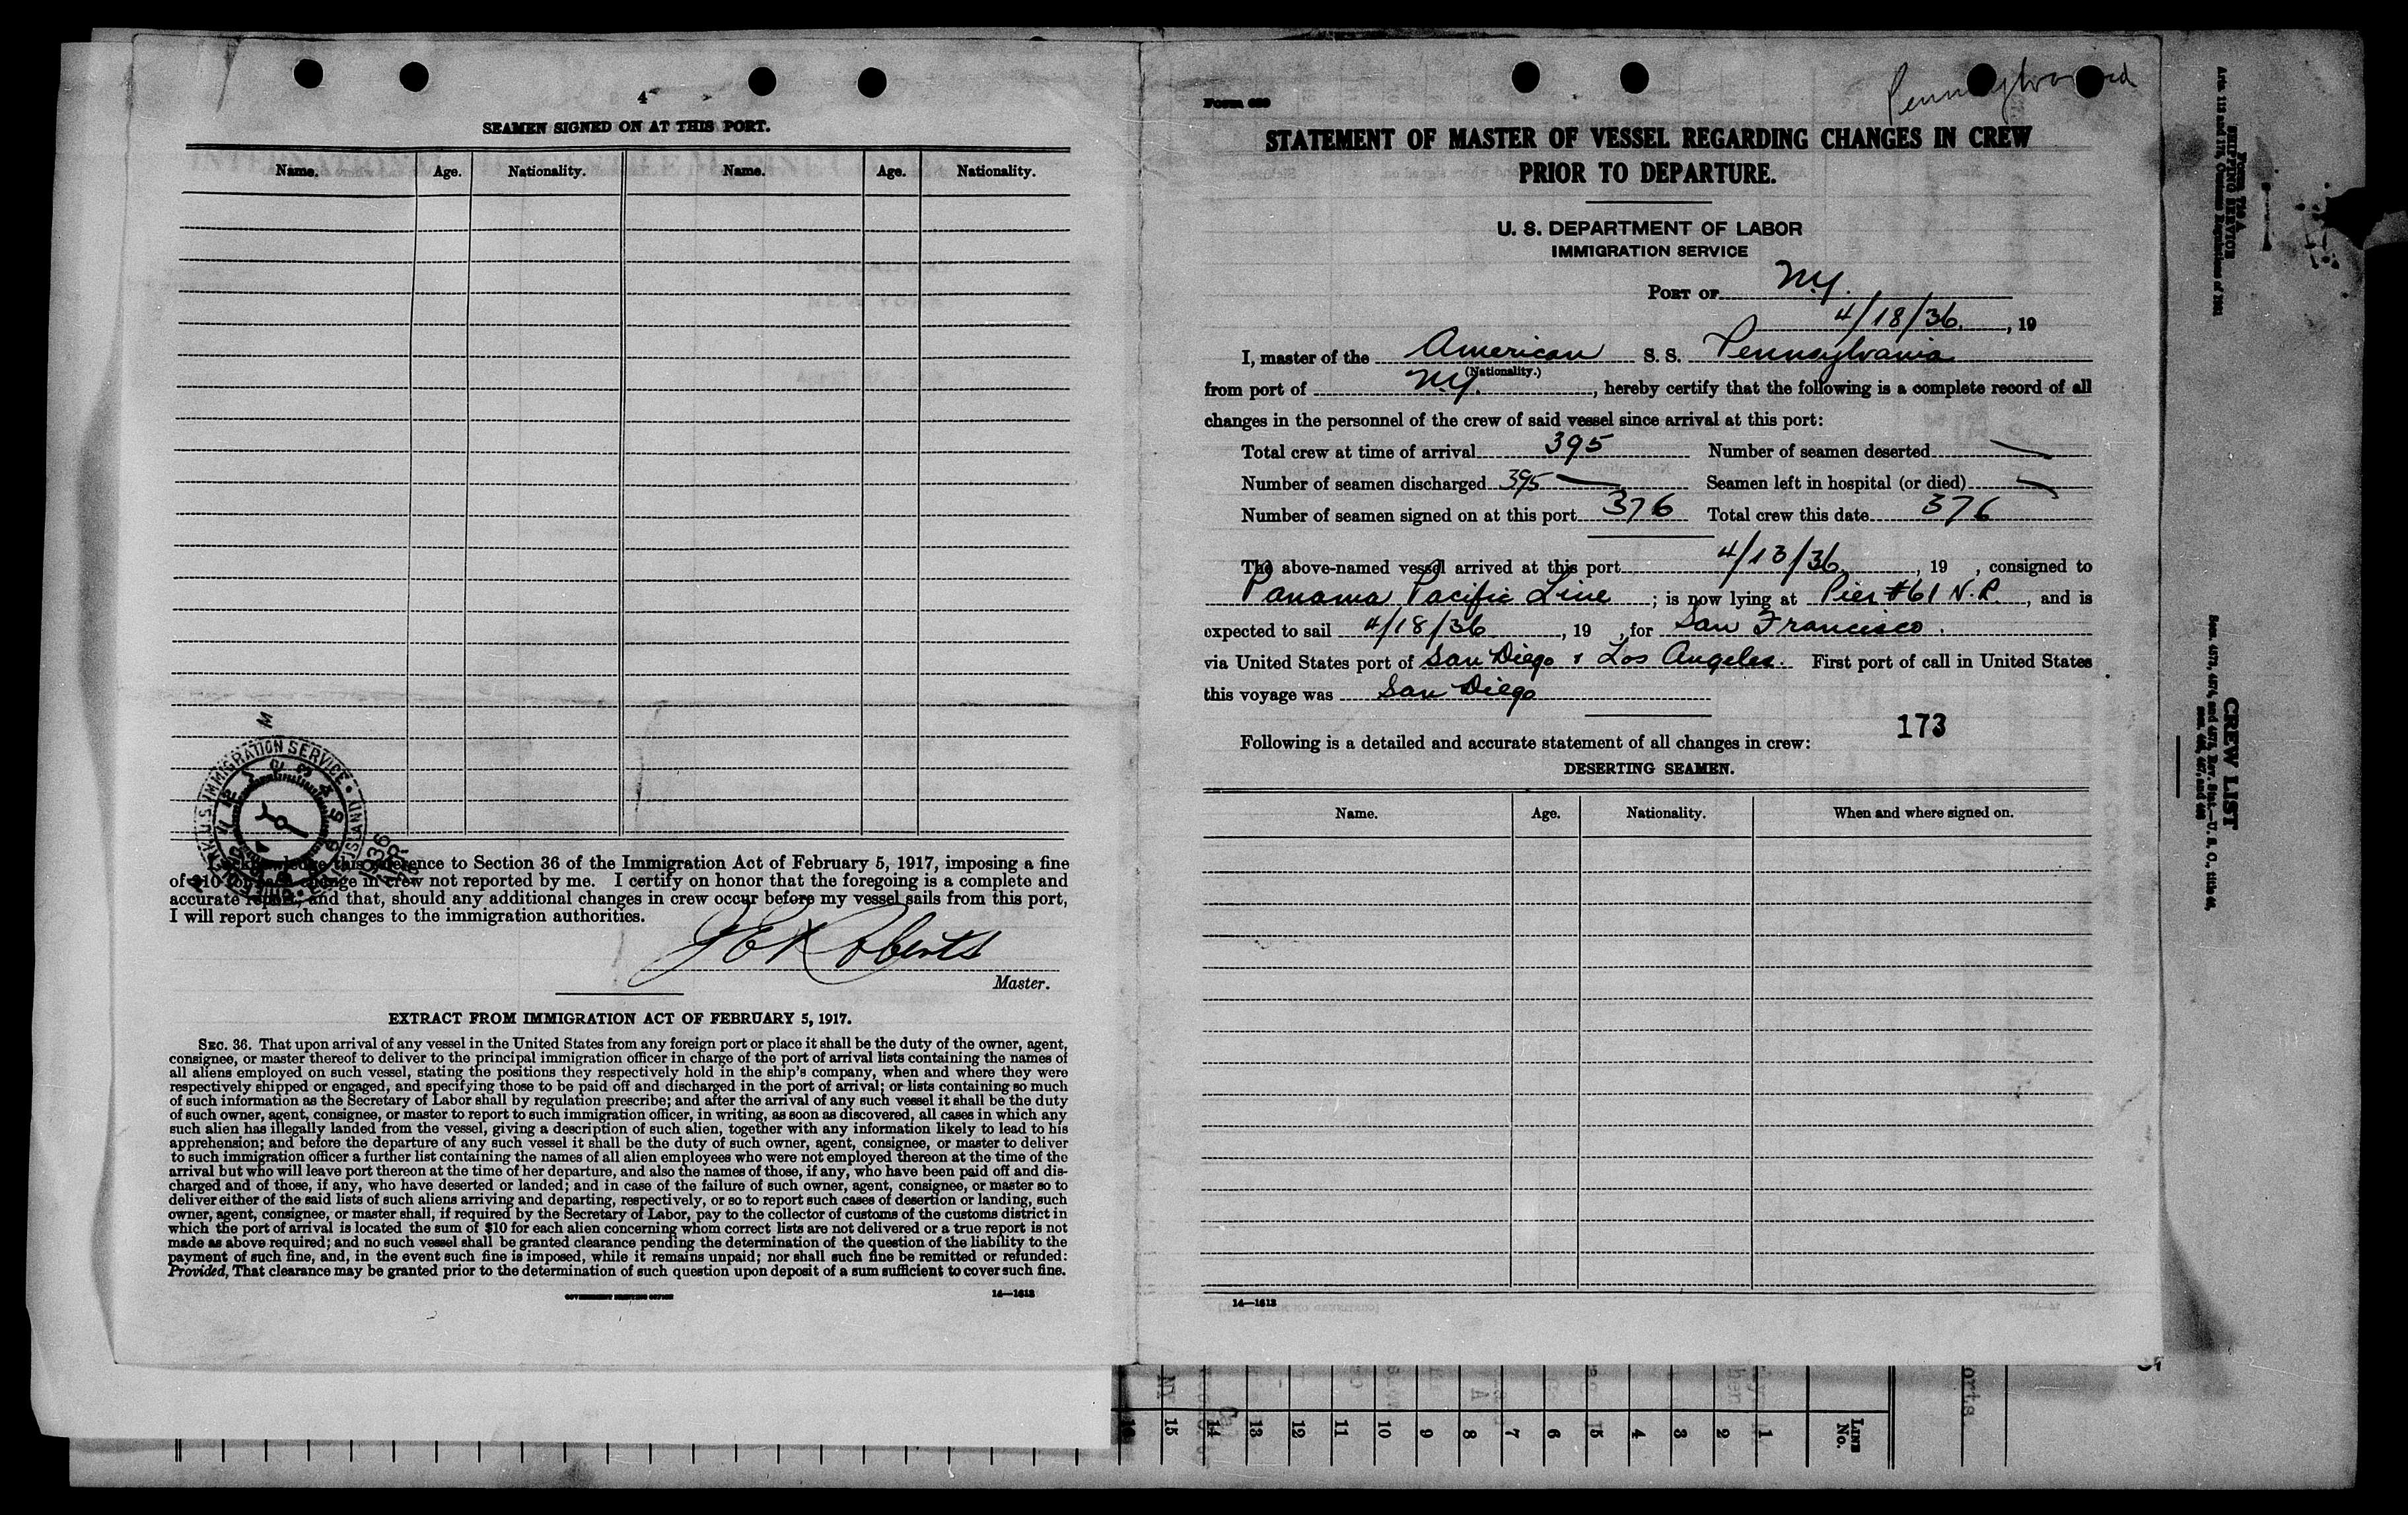 4
SEAMEN SIGNED ON AT THIS PORT.
Name. Age. Nationality. Name. Age. Nationality.
U.S. IMMIGRATION SERVICE
this reference to Section 36 of the Immigration Act of February 5, 1917, imposing a fine
of $10 for each change in crew not reported by me. I certify on honor that the foregoing is a complete and
accurate report, and that, should any additional changes in crew occur before my vessel sails from this port,
I will report such changes to the immigration authorities.
J E Roberts
Master.
EXTRACT FROM IMMIGRATION ACT OF FEBRUARY 5, 1917.
SEC. 36. That upon arrival of any vessel in the United States from any foreign port or place it shall be the duty of the owner, agent,
consignee, or master thereof to deliver to the principal immigration officer in charge of the port of arrival lists containing the names of
all aliens employed on such vessel, stating the positions they respectively hold in the ship's company, when and where they were
respectively shipped or engaged, and specifying those to be paid off and discharged in the port of arrival; or lists containing so much
of such information as the Secretary of Labor shall by regulation prescribe; and after the arrival of any such vessel it shall be the duty
of such owner, agent, consignee, or master to report to such immigration officer, in writing, as soon as discovered, all cases in which any
such alien has illegally landed from the vessel, giving a description of such alien, together with any information likely to lead to his
apprehension; and before the departure of any such vessel it shall be the duty of such owner, agent, consignee, or master to deliver
to such immigration officer a further list containing the names of all alien employees who were not employed thereon at the time of the
arrival but who will leave port thereon at the time of her departure, and also the names of those, if any, who have been paid off and dis-
charged and of those, if any, who have deserted or landed; and in case of the failure of such owner, agent, consignee, or master so to
deliver either of the said lists of such aliens arriving and departing, respectively, or so to report such cases of desertion or landing, such
owner, agent, consignee, or master shall, if required by the Secretary of Labor, pay to the collector of customs of the customs district in
which the port of arrival is located the sum of $10 for each alien concerning whom correct lists are not delivered or a true report is not
made as above required; and no such vessel shall be granted clearance pending the determination of the question of the liability to the
payment of such fine, and, in the event such fine is imposed, while it remains unpaid; nor shall such fine be remitted or refunded:
Provided, That clearance may be granted prior to the determination of such question upon deposit of a sum sufficient to cover such fine.
GOVERNMENT PRINTING OFFICE 14—1613
Form 689
STATEMENT OF MASTER OF VESSEL REGARDING CHANGES IN CREW
PRIOR TO DEPARTURE.
U. S. DEPARTMENT OF LABOR
IMMIGRATION SERVICE
PORT OF N.Y.
4/18/36, 19
I, master of the American S. S. Pennsylvania
(Nationality.)
from port of N.Y., hereby certify that the following is a complete record of all
changes in the personnel of the crew of said vessel since arrival at this port:
Total crew at time of arrival 395 Number of seamen deserted —
Number of seamen discharged 395 — Seamen left in hospital (or died) —
Number of seamen signed on at this port 376 Total crew this date 376
The above-named vessel arrived at this port 4/13/36, 19 , consigned to
Panama Pacific Line ; is now lying at Pier #61 N.R., and is
expected to sail 4/18/36, 19 , for San Francisco.
via United States port of San Diego & Los Angeles. First port of call in United States
this voyage was San Diego
173
Following is a detailed and accurate statement of all changes in crew:
DESERTING SEAMEN.
Name. Age. Nationality. When and where signed on.
14—1613
SHIPPING SERVICE
CREW LIST
LINE No. 1 2 3 4 5 6 7 8 9 10 11 12 13 14 15 16